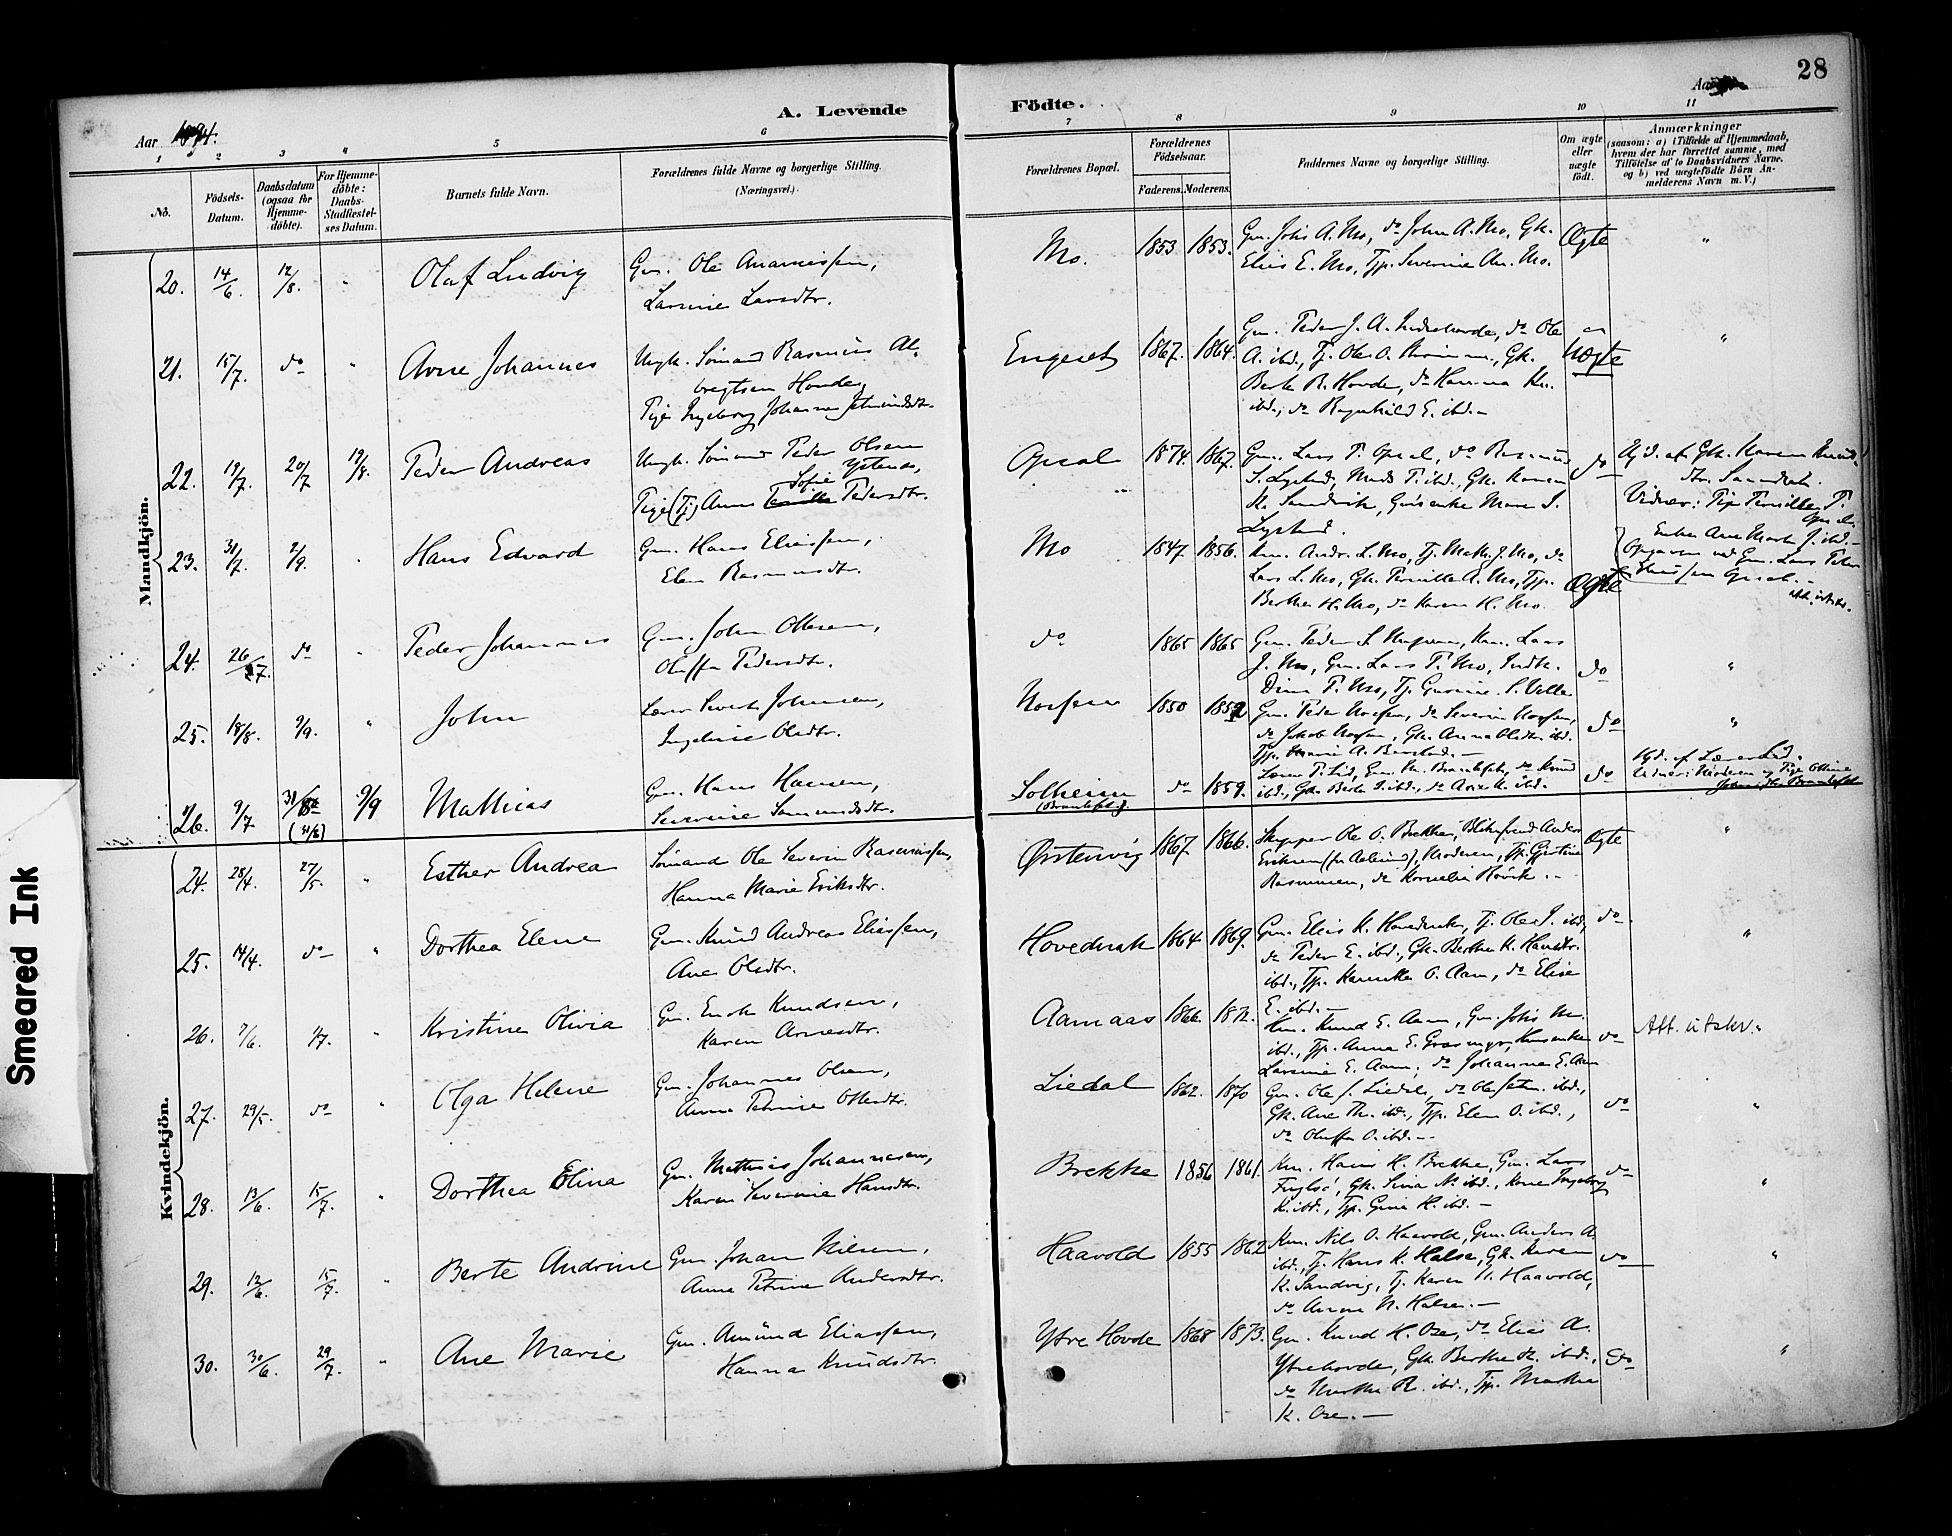 28
A. Levende Fødte.
Aar 1894.
Aar
1 2 3 4 5 6 7 8 9 10 11
No.
Fødsels-
Datum.
Daabsdatum
(ogsaa for
Hjemme-
døbte).
For Hjemme-
døbte:
Daabs-
Stadfæstel-
ses Datum.
Barnets fulde Navn.
Forældrenes fulde Navne og borgerlige Stilling.
(Næringsvei.)
Forældrenes Bopæl.
Forældrenes
Fødselsaar.
Faderens. Moderens.
Faddernes Navne og borgerlige Stilling.
Om ægte
eller
uægte
født.
Anmærkninger
(saasom: a) i Tilfælde af Hjemmedaab,
hvem der har forrettet samme, med
Tilføielse af to Daabsvidners Navne.
og b) ved uægtefødte Børn An-
melderens Navn m. V.)
Mandkjøn.
20. 14/6. 12/8. " Olaf Ludvig
Gm. Ole
Larsine Larsdtr.
Mo. 1853 1853.
Gm. Johs A. Mo, do John A. Mo, Gk.
Elies E. Mo, Tjp. Severine An. Mo.
Ægte "
21. 15/7. do " Arne Johannes
Ungk. Sömand Rasmus Al-
bregtsen Hovde,
Pige Ingeborg Johanne
Engeset 1867. 1864.
Gm. Peder J. A. Indrehovde, do Ole
A. ibd., Tj. Ole O. Gk.
Berte R. Hovde, do Hanna Kn.
ibd., do Ragnhild E. ibd. –
Uægte "
22. 19/7. 20/7 19/8. Peder Andreas
Ungk. Sömand Peder Olsen
Ystenes,
Sofie
Pige (Tj) Anne Pedersdtr.
Opsal 1874. 1867.
Gm. Lars P. Opsal, do Rasmus
S. Lystad, Mads P. ibd., Gk. Karen
K. Sandvik, Gårdenke Mare S.
Lystad.
do
Hjd. af Gk. Karen Knuds-
dtr. Sandvik.
Vidner: Pige Pernille P.
Opsal,
Enken Ane Marta J. ibd. –
Opgaven ved Gm. Lars Peter
Opsal. –
att. utstr.
23. 31/7. 2/9. Hans Edvard
Gm. Hans Eliassen,
Elen Rasmusdtr.
Mo 1847. 1856.
Km. Andr. L. Mo, Tj. Math. J. Mo, do
Lars L. Mo, Gk. Pernille A. Mo, Tjp.
Berthe H. Mo, do Karen H. Mo.
Ægte
24. 26/7. do " Peder Johannes
Gm. John Olsen,
Oluffa Pedersdtr.
do 1865 1865
Gm. Peder S. Km. Lars
J. Mo, Gm. Lars P. Mo, Indk.
Dina P. Mo, Tj. Gurine P. Velle
do "
25. 18/8. 2/9. " John
Lærer Sivert Johnsen,
Ingeline Olsdtr.
1850 1852
Gm. Peder do Severin
do Jakob Gk. Anna Olsdtr. ibd.
Tjp. Marie A. –
do "
26. 9/7 9/9 Mathias
Gm. Hans Hansen,
Severine Sammundsdtr.
Solheim
(Brandsfd.)
do 1859.
Lærer P. Lid, Gm. Kn. do Knud
ibd., Gk. Berte ibd., do Ane K. ibd.
do
Hjd. af Lærer Lid.
Vidner: Moderen og Pige Oline
Kvindekjøn.
24. 28/4. 27/5. " Esther Andrea
Sömand Ole Severin Rasmussen,
Hanna Marie Eriksdtr.
Ørstenvig 1867 1866.
Skipper Ole O. Brekke, Anders
Eriksen (fra Aalesund), Moderen, Tjp. Gjertine
Rasmussen, do Kornelia Rövik. –
Ægte "
25. 14/4. do " Dorthea Elene
Gm. Knud Andreas Eliassen,
Ane Olsdtr.
Hovednak 1864 1869.
Gm. Elias K. Hovednak, Tj. Ole J. ibd.,
do Peder E. ibd., Gk. Berthe K. Hansdtr.
ibd., Tjp. O. Aam, do Elise
E. ibd. –
do "
26. 7/6. 1/7. " Kristine Olivia
Gm. Knudsen,
Karen Arnesdtr.
Aamaas 1866. 1872.
Km. Knud E. Aam, Gm. Johs
ibd., Tjp. Anna E. Husenke
Larsine E. Aam, do Johanna E. Aam
do Att. utskr. "
27. 29/5. do " Olga Helene
Gm. Johannes Olsen,
Anne Petrine Olsdtr.
Liedal 1862. 1870
Gm. Ole J. Liedal, do Ole ibd.,
Gk. Ane ibd., Tjp. Elen O. ibd.,
do Oluffa O. ibd. –
do "
28. 13/6. 15/7. " Dorthea Elina
Gm. Mathias Johannesen,
Karen Severine Hansdtr.
Brekke 1856 1861.
Km. Hans H. Brekke, Gm. Lars
Gk. Sina ibd., Kone Ingeborg
K. ibd., Tjp. Gina H. ibd. –
do "
29. 12/6. 15/7. " Berte Andrine
Gm. Johan Nilsen,
Anne Petrine Andersdtr.
Haavold 1855 1862
Km. Nils O. Haavold, Gm. Anders A.
ibd., Tj. Hans K. Halse, Gk. Karen
K. Sandvig, Tj. Karen N. Haavold,
do Anne N. Halse. –
do "
30. 30/6. 29/7. " Ane Marie
Gm. Amund Eliassen,
Hanna Knudsdtr.
Ytre Hovde 1868 1873.
Gm. Knud H. Ose, do Elias A.
Ytrehovde, Gk. Berthe R. ibd.,
do Marthe R. ibd., Tjp. Marthe
K. Ose. –
do "
Smeared Ink